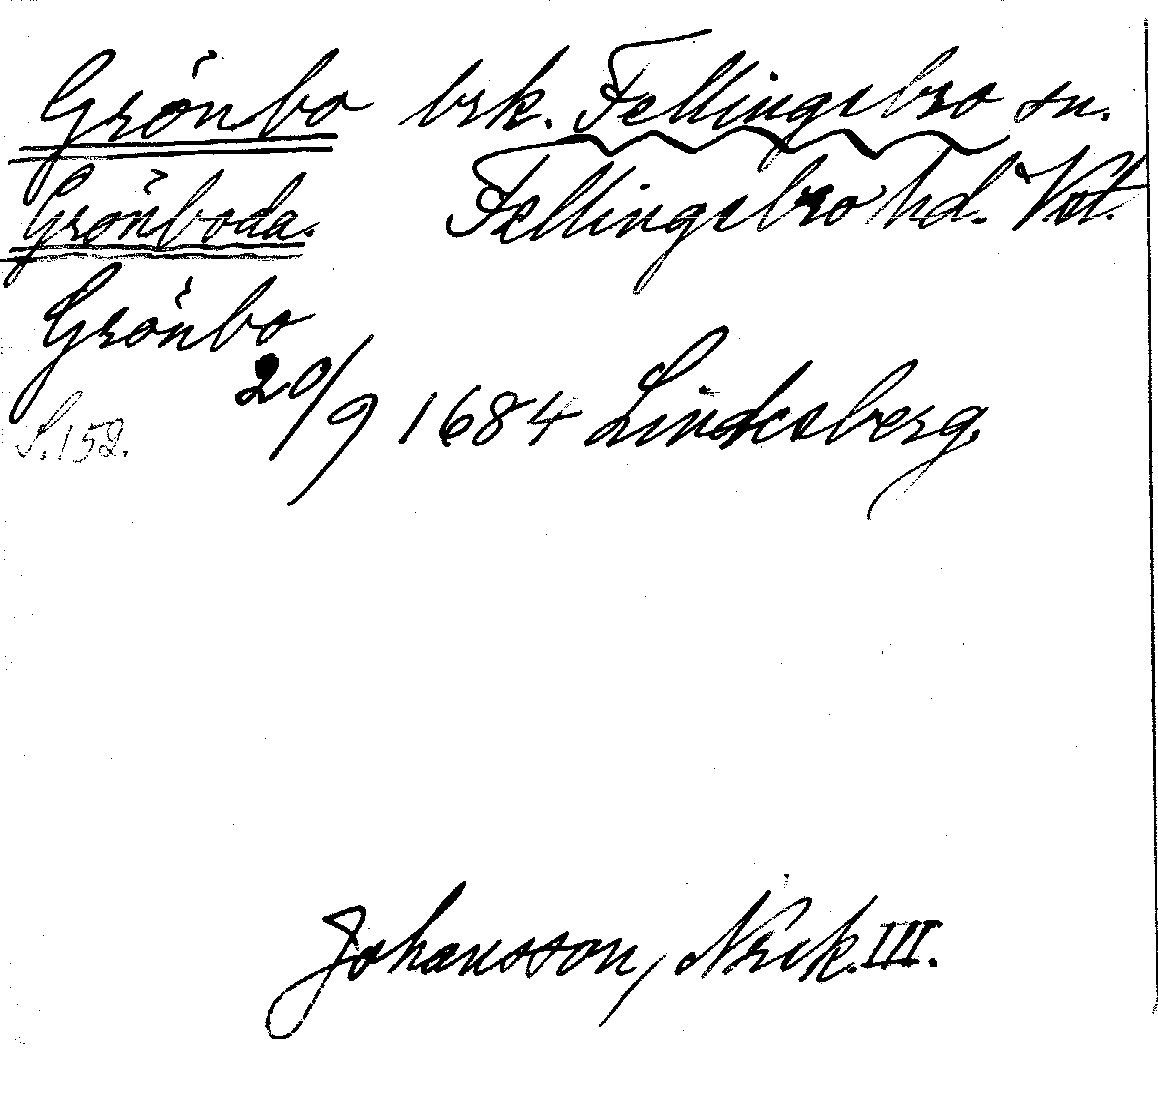 Grönbo brk. Fellingsbro sn.
Grönboda. Fellingsbro hd. Vstl.
Grönbo
20/9 1684 Lindesberg.
S. 152.
Johansson, Noraskog. III.